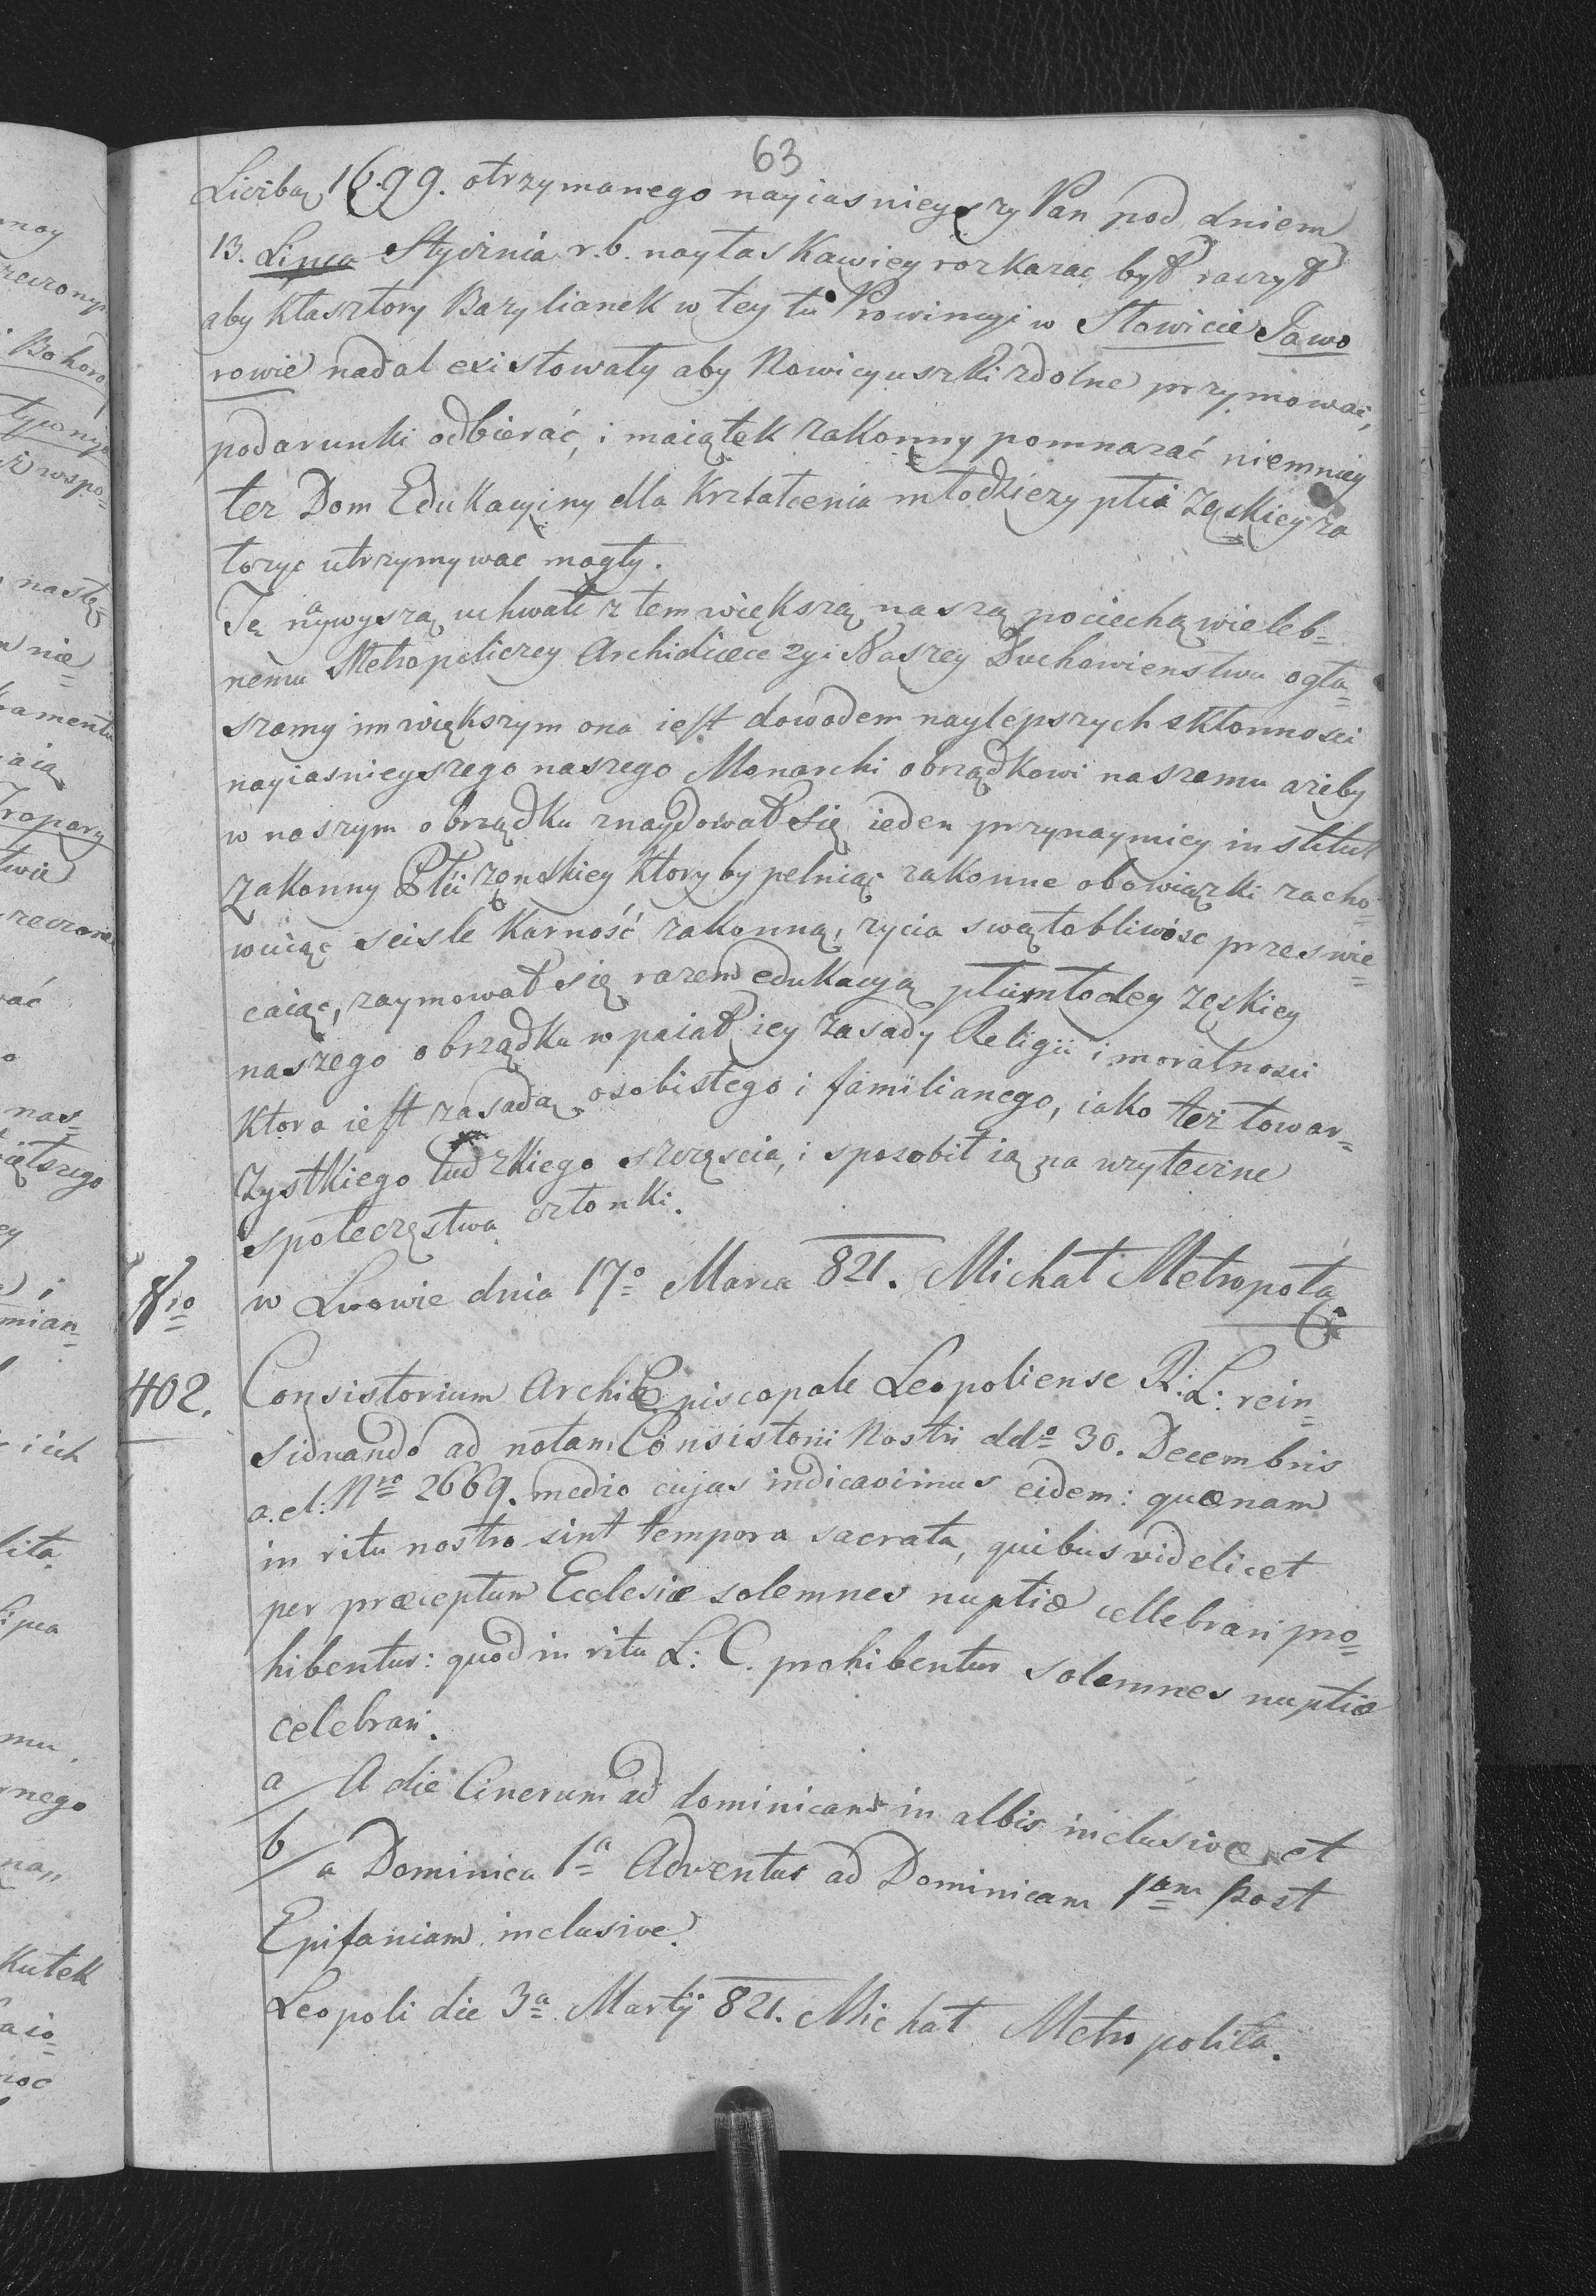 63
Liczbą 1699. otrzymanego nayiasnieyszy Pan pod dniem
13. Lipca Stycznia r.b. nayłaskawiey rozkazac był raczył
aby Klasztory Bazylianek w tey tu Prowincyi w Słowicie Jawo
rowie nadal existowały aby Nowicyuszki zdolne przymować,
podarunki odbierać, i maiątek zakonny pomnazać niemniey
tez Dom Edukacyiny dla Krztałcenia młodziezy płci zęskiey za
tozyc utrzymywac mogły.
Tę naywyszą uchwałe z tem większą naszą pociechą wieleb=
nemu Metropoliczey Archidiecezyi Naszey Duchowienstwu ogła=
szamy im większym ona iest dowodem naylepszych skłonnosci
nayiasnieyszego naszego Monarchi obrządkowi naszemu azeby
w naszym obrządku znaydował się ieden przynaymiey institut
zakonny Płci zonskiey ktory by pełniąc zakonne obowiązki zacho=
wuiąc scisle karność zakonną, zycia swątobliwosc przeswie=
caiąc, zaymował się razem edukacyą płci młodey zęskiey
naszego obrządku wpaiał iey zasady Religii i moralnosci
Ktora iest zasadą osobistego i familianego, iako też towar=
zystkiego ludzkiego szczęscia, i sposobił ią na uzyteczne
społeczęstwa członki.
w Lwowie dnia 17o Marca 821. Michał Metropolita
Nro
402.
Consistorium ArchiEpiscopale Leopoliense R: L: rein=
sinuando ad notam Consistorii Nostri ddo 30. Decembris
a. el: Nro 2669. medio cujus indicavimus eidem: quænam
in ritu nostro sint tempora sacrata, quibus videlicet
per præceptum Ecclesiæ solemnes nuptiæ cellebrari pro=
hibentur: quod in ritu L: C. prohibentur solemnes nuptiæ
celebrari.
a/ A die Cinerum ad dominicam in albis inclusive, et
b/ a Dominica 1a Adventus ad Dominicam 1am post
Epifaniam inclusive.
Leopoli die 3a Martij 821. Michał Metropolita.